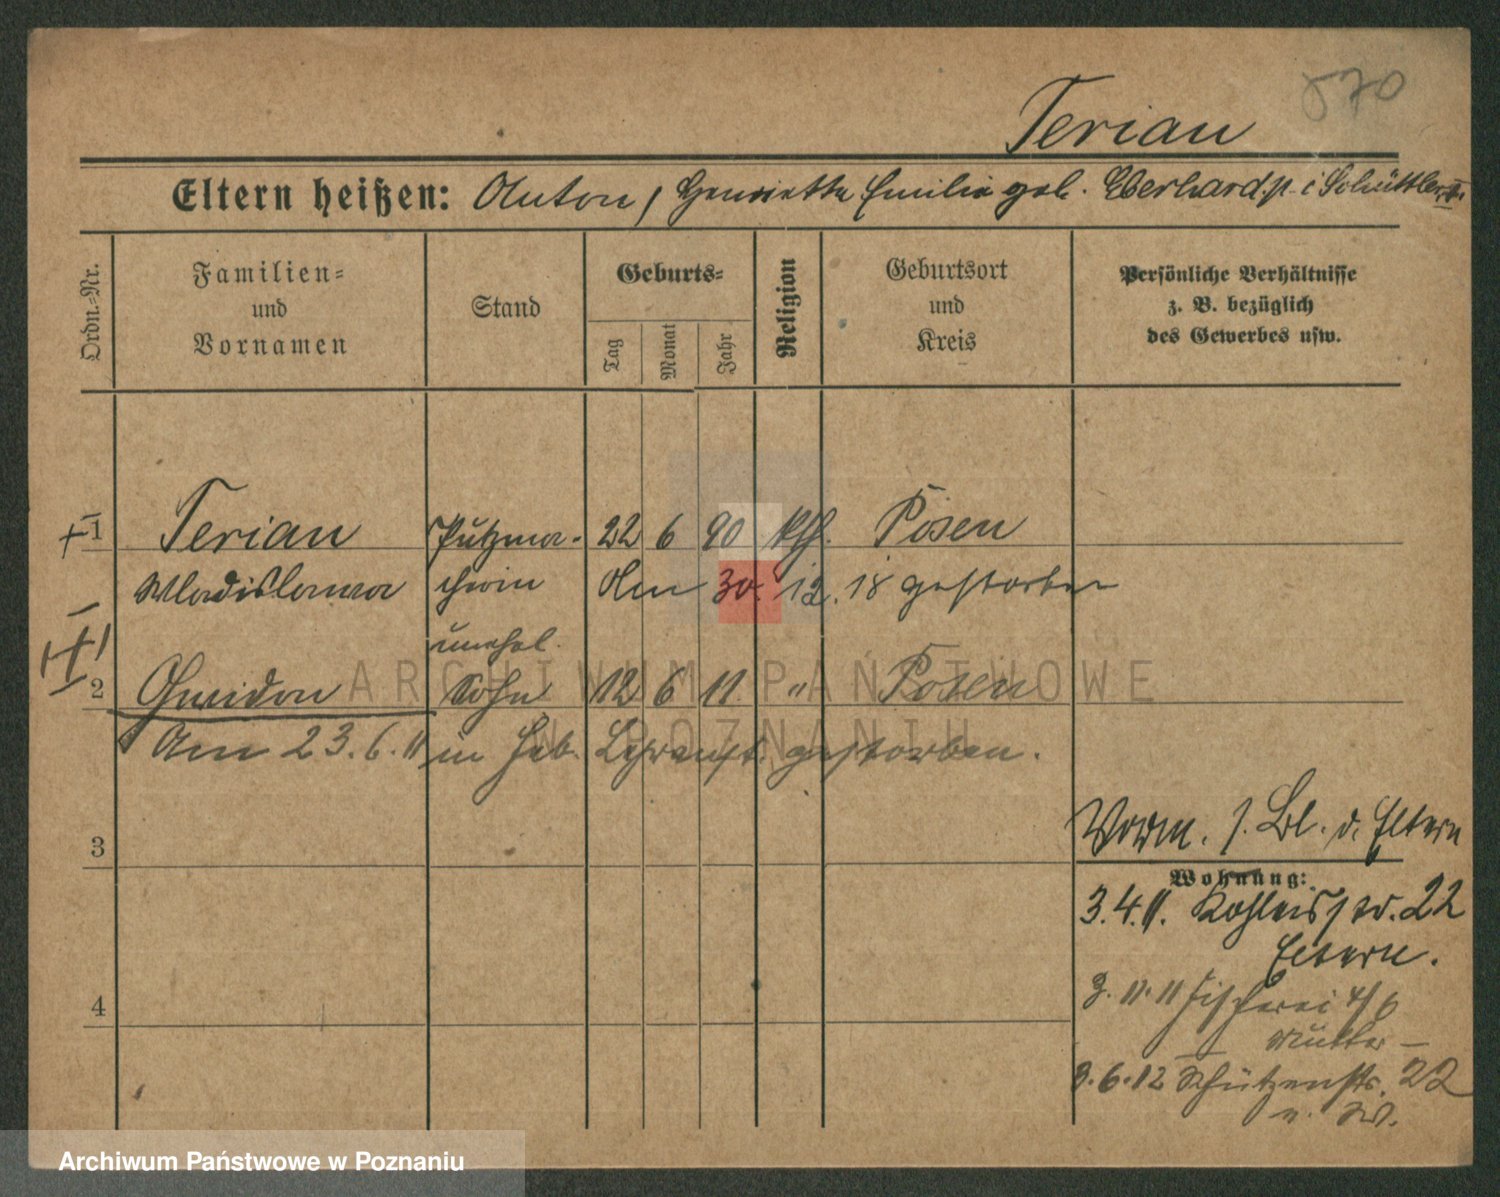 570
Terian
Eltern heißen: Anton, Henriette Emilie geb. Eberhard, p. i Schüttler.
Ordn.-Nr.
Familien-
und
Vornamen
Stand
Geburts-
Tag
Monat
Jahr
Religion
Geburtsort
und
Kreis
Persönliche Verhältnisse
z. B. bezüglich
des Gewerbes usw.
1 Terian Putzma- 22 6 90 kth. Posen
Wladislawa cherin Am 30. 12. 18 gestorben
unehel.
2 Sohn 12 6 11. " Posen
Am 23.6.11 in Heb. Lehranst. gestorben.
3
Vorm. s. Bl. d. Eltern
Wohnung:
3.4.11. Kohleisstr. 22
Eltern.
4
3.11.11 Fischerei 4/6
Mutter –
3.6.12 Schützenstr. 22
ARCHIWUM PAŃSTWOWE
W POZNANIU
Archiwum Państwowe w Poznaniu